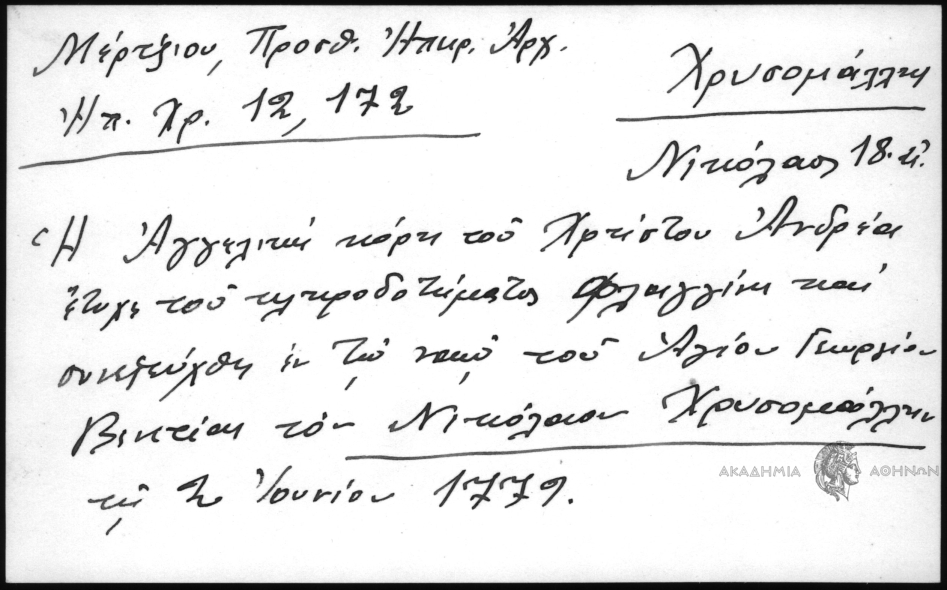 Μέρτζιου, Προσθ. Ἠπειρ. Ἀρχ.
Ἠπ. Χρ. 12, 172
Χρυσομάλλης
Νικόλαος 18. αἰ.
Ἡ Ἀγγελικὴ κόρη τοῦ Χρήστου Ἀνδρέα
ἔτυχε τοῦ κληροδοτήματος Φλαγγίνη καὶ
συνεζεύχθη ἐν τῷ ναῷ τοῦ Ἁγίου Γεωργίου
Βενετίας τὸν Νικόλαον Χρυσομάλλην
τῇ 2 Ἰουνίου 1779.
ΑΚΑΔΗΜΙΑ ΑΘΗΝΩΝ